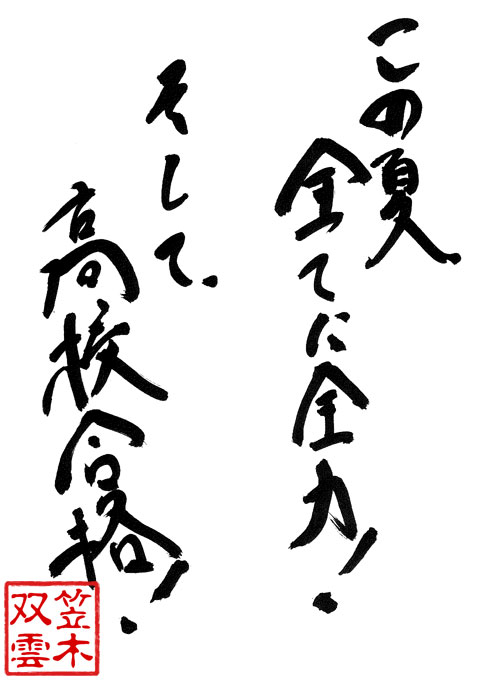 この夏
全てに全力!
そして、
高校合格!
笠木
双雲